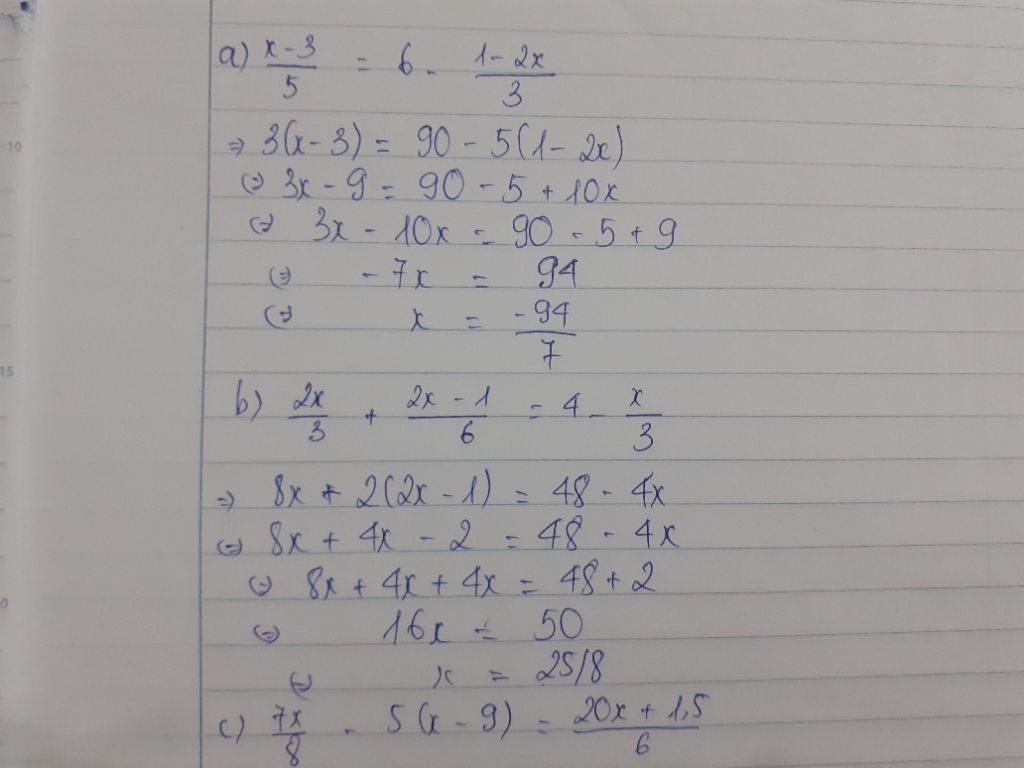 a) (x-3)/5 = 6 - (1-2x)/3
⇒ 3(x-3) = 90 - 5(1-2x)
⇔ 3x - 9 = 90 - 5 + 10x
⇔ 3x - 10x = 90 - 5 + 9
⇔ -7x = 94
⇔ x = -94/7
b) 2x/3 + (2x-1)/6 = 4 - x/3
⇒ 8x + 2(2x-1) = 48 - 4x
⇔ 8x + 4x - 2 = 48 - 4x
⇔ 8x + 4x + 4x = 48 + 2
⇔ 16x = 50
⇔ x = 25/8
c) 7x/8 - 5(x-9) = (20x+1,5)/6